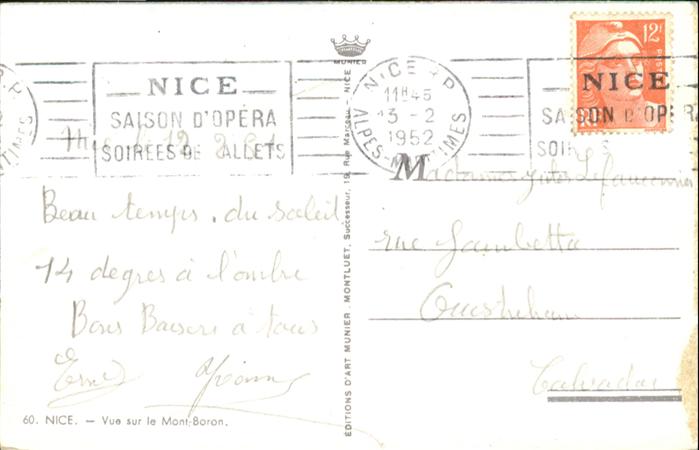 NICE
SAISON D'OPÉRA
SOIRÉES DE BALLETS
Beau temps. du soleil
14 degres à l'ombre
Bons Baisers à tous
Yvonne
60. NICE. — Vue sur le Mont-Boron.
MUNIER
NICE
ÉDITIONS D'ART MUNIER. MONTLUET, Successeur, 19, Rue Marceau - NICE
NICE R.P
11H45
3-2
1952
ALPES-MARITIMES
12F
NICE
SAISON D'OPÉRA
SOIR
Madame Jules
rue Gambetta
Ouistreham
Calvados